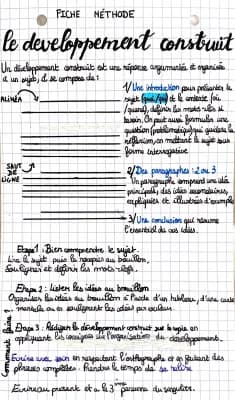 FICHE MÉTHODE
le developpement construit
Un développement construit est une réponse argumentée et organisée
à un sujet, il se compose de :
1/ Une introduction pour présenter le
sujet et le contexte (où
/quand), définir les mots-clés si
besoin. On peut aussi formuler une
question (problématique) qui guidera la
réflexion, en mettant le sujet sous
forme interrogative
ALINÉA
SAUT
DE
LIGNE
2/ Des paragraphes : 2 ou 3
Un paragraphe comprend une idée
principale, des idées secondaires,
expliquées et illustrées d'exemple
3/ Une conclusion qui résume
l'essentiel de ces idées.
Comment faire ?
Etape 1 : Bien comprendre le sujet.
Lire le sujet puis le recopier au brouillon,
Souligner et définir les mots-clefs.
Etape 2 : Lister les idées au brouillon
Organiser les idées au brouillon à l'aide d'un tableau, d'une carte
mentale ou en soulignant les idées par couleur.
Etape 3 : Rédiger le développement construit sur la copie en
appliquant les consignes sur l'organisation du développement.
Ecrire avec soin en respectant l'orthographe et en faisant des
phrases complètes. Prendre le temps de se relire
Ecrire au présent et à la 3ème personne du singulier.